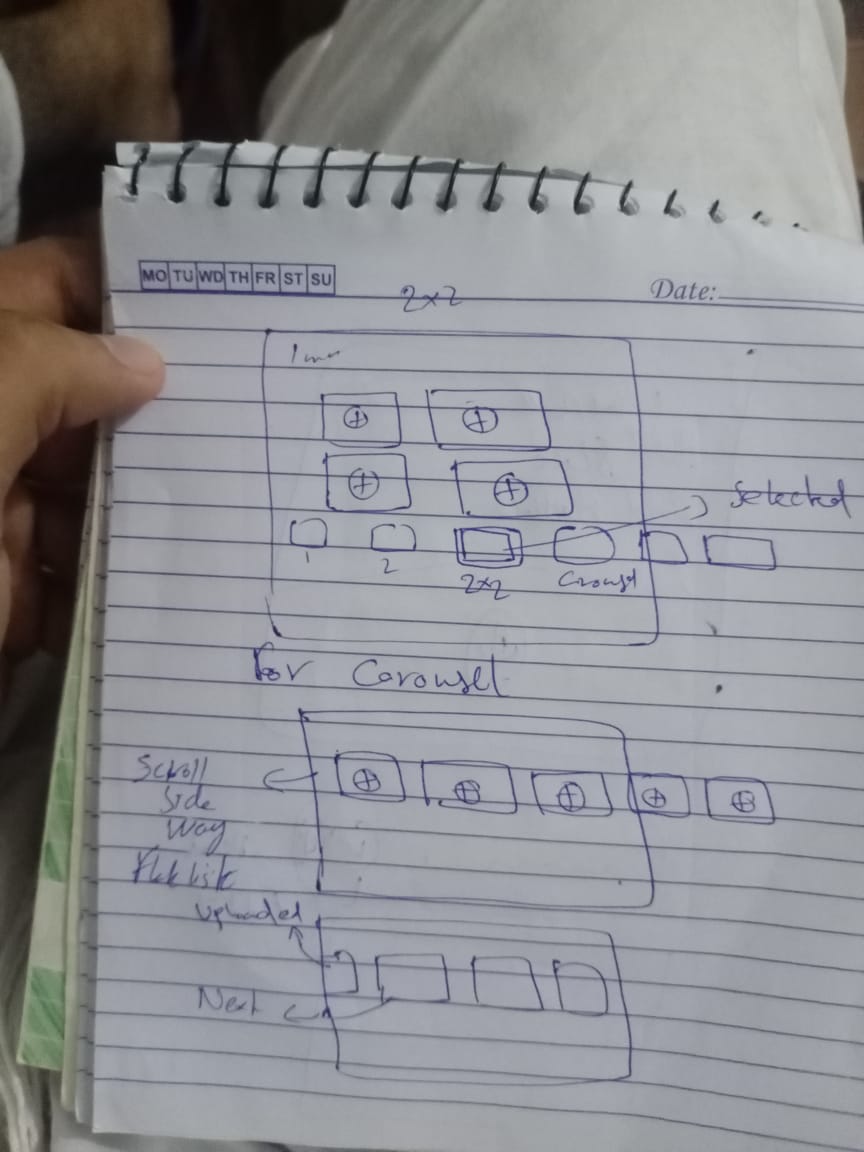 MO TU WD TH FR ST SU
Date:
2x2
Selected
1
2
2x2
Crousel
For Carousel
Scroll
Side
Way
Flat list
Uploaded
Next